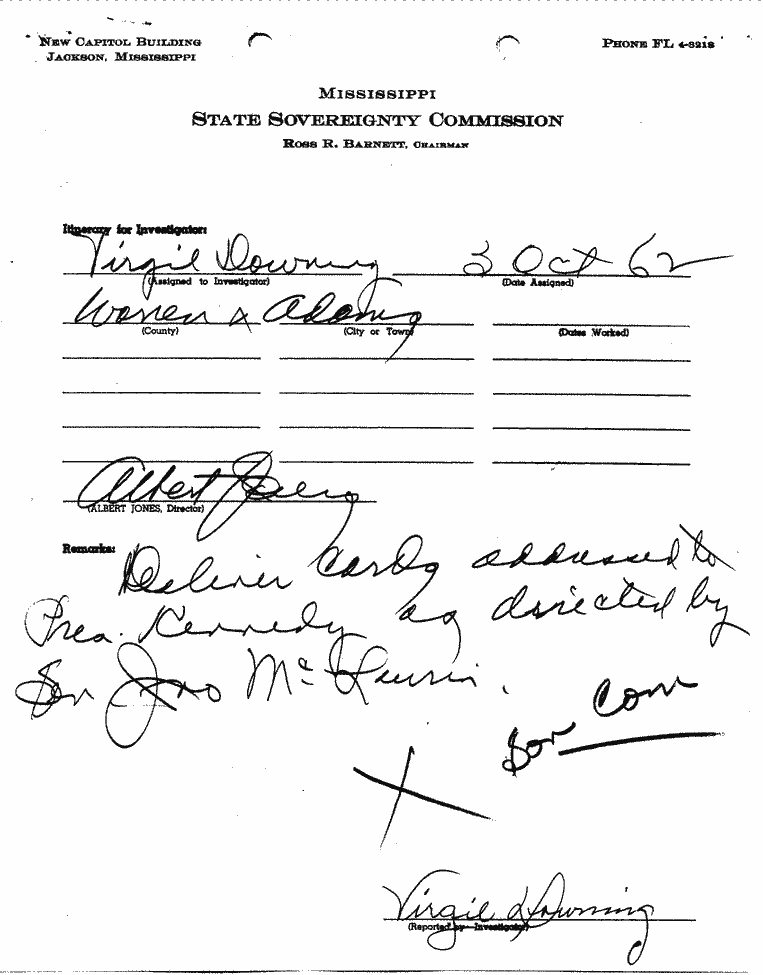 NEW CAPITOL BUILDING
JACKSON, MISSISSIPPI
PHONE FL 4-3218
MISSISSIPPI
STATE SOVEREIGNTY COMMISSION
ROSS R. BARNETT, CHAIRMAN
Itinerary for Investigator:
Virgil Downing 3 Oct 62
(Assigned to Investigator) (Date Assigned)
Warren & Adams
(County) (City or Town) (Dates Worked)
Albert Jones
(ALBERT JONES, Director)
Remarks:
Deliver cards addressed to
Pres. Kennedy as directed by
Sen Jno McLaurin.
Sov Com
Virgil Downing
(Reported by Investigator)